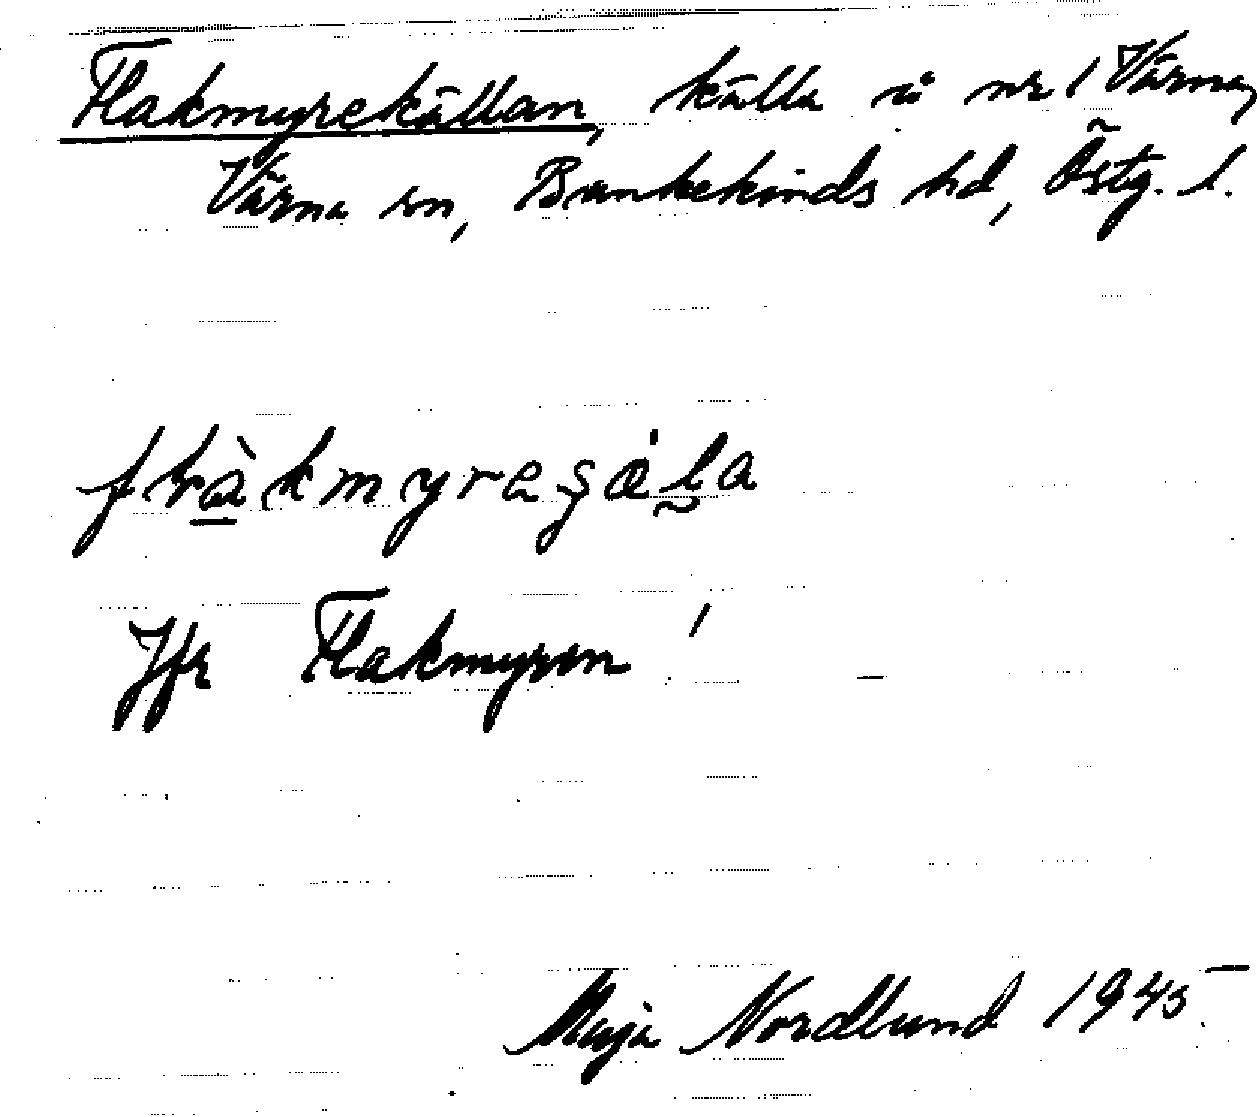 Flakmyrekällan, källa å nr 1 Värna,
Värna sn, Bankekinds hd, Östg. l.
Jfr Flakmyren!
Maja Nordlund 1945